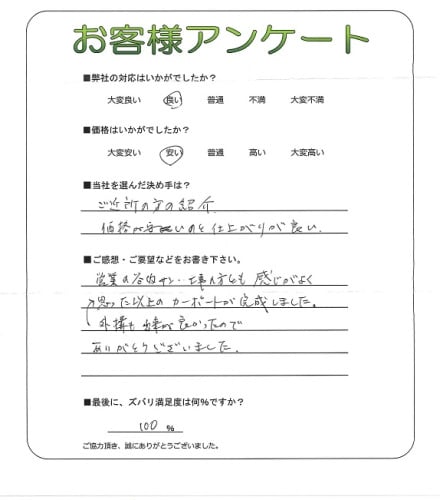 お客様アンケート
■弊社の対応はいかがでしたか？
大変良い 良い 普通 不満 大変不満
■価格はいかがでしたか？
大変安い 安い 普通 高い 大変高い
■当社を選んだ決め手は？
ご近所の方の紹介
価格が安いのと仕上がりが良い.
■ご感想・ご要望などをお書き下さい。
営業の谷内サン・工事の方も 感じがよく
思った以上の カーポートが完成しました。
外構も 出来が良かったので
ありがとうございました.
■最後に、ズバリ満足度は何％ですか？
100 %
ご協力頂き、誠にありがとうございました。